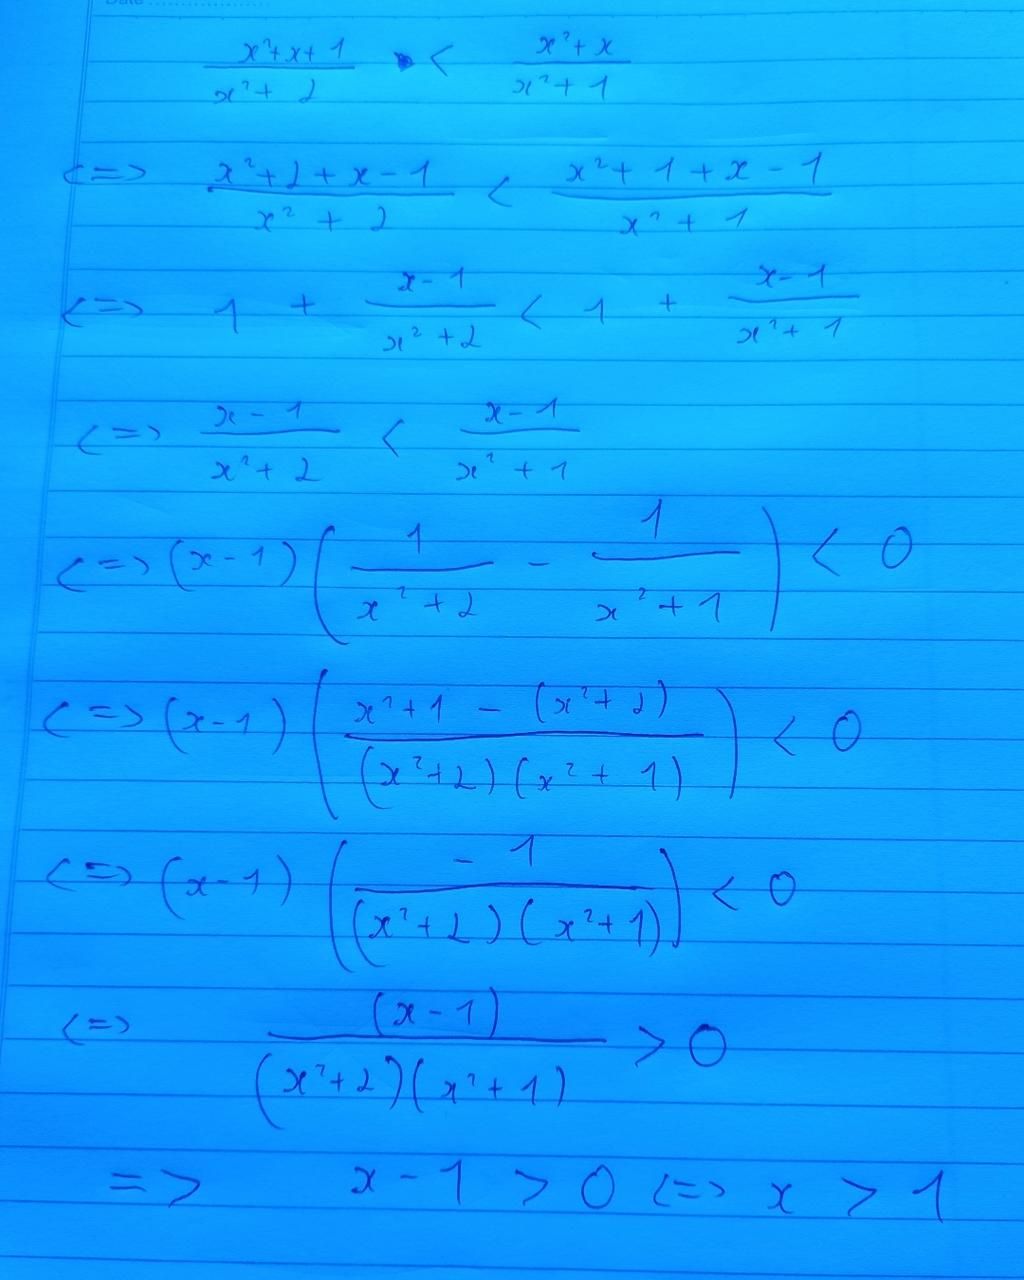 Date
(x²+x+1)/(x²+2) < (x²+x)/(x²+1)
<=> (x²+2+x-1)/(x²+2) < (x²+1+x-1)/(x²+1)
<=> 1 + (x-1)/(x²+2) < 1 + (x-1)/(x²+1)
<=> (x-1)/(x²+2) < (x-1)/(x²+1)
<=> (x-1) (1/(x²+2) - 1/(x²+1)) < 0
<=> (x-1) ((x²+1 - (x²+2))/((x²+2)(x²+1))) < 0
<=> (x-1) (-1/((x²+2)(x²+1))) < 0
<=> (x-1)/((x²+2)(x²+1)) > 0
=> x-1 > 0 <=> x > 1